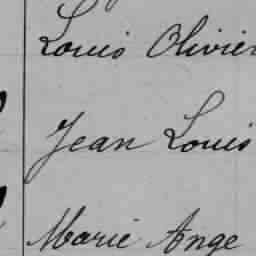 Louis Olivier
Jean Louis
Marie Ange